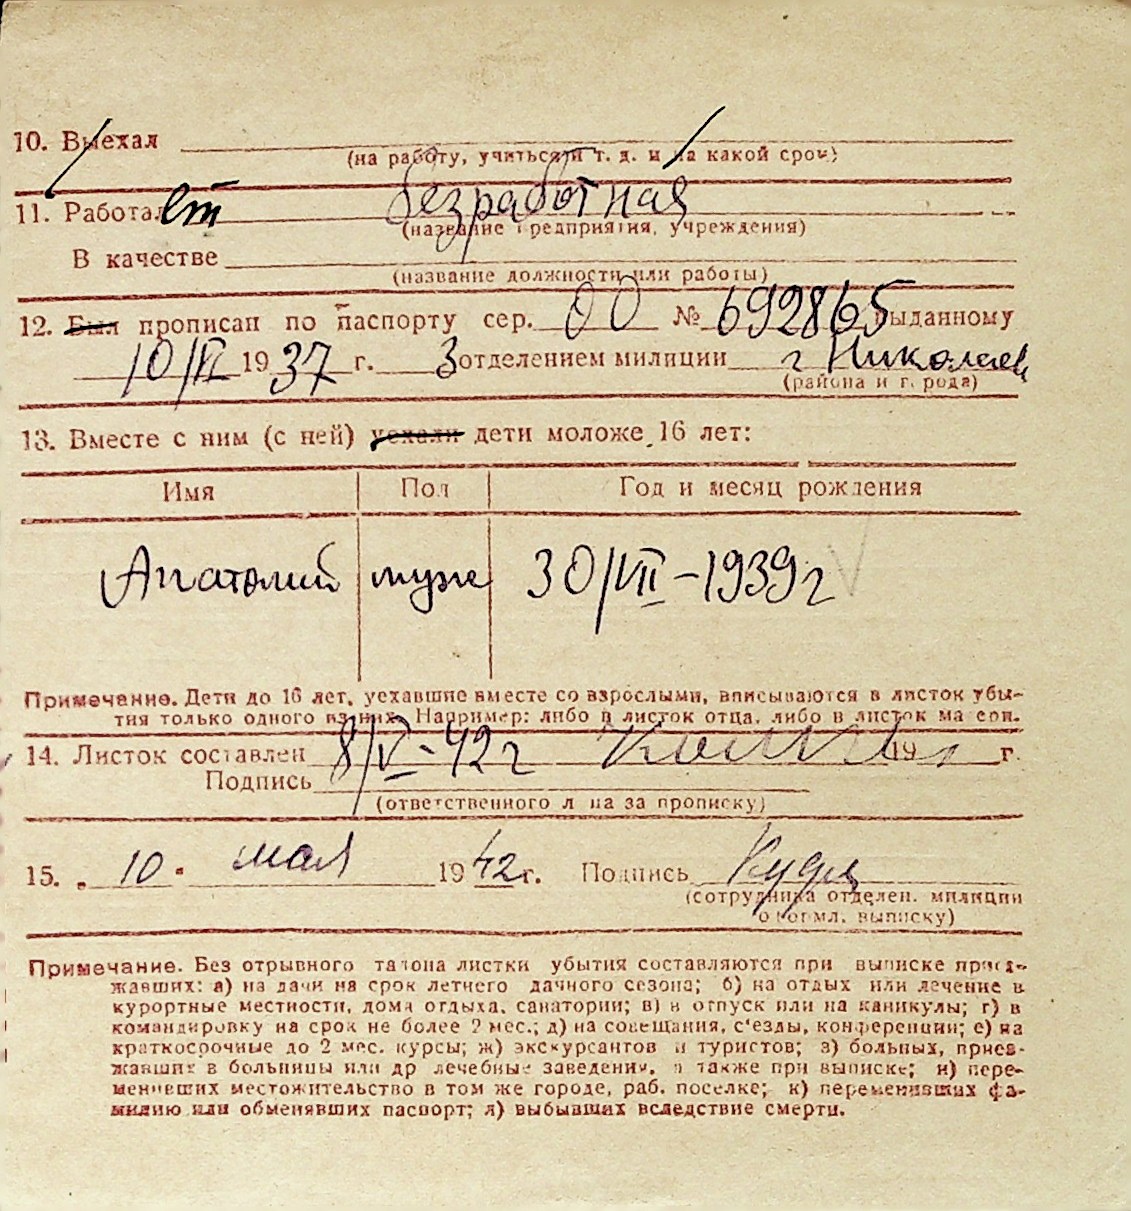 10. Выехал
(на работу, учиться и т. д. и на какой срок)
11. Работает безработная
(название предприятия, учреждения)
В качестве
(название должности или работы)
12. Был прописан по паспорту сер. ОО № 692865 выданному
10/VI 1937 г. 3 отделением милиции г Николаев
(района и города)
13. Вместе с ним (с ней) уехали дети моложе 16 лет:
Имя Пол Год и месяц рождения
Анатолий муже 30/VII – 1939 г
Примечание. Дети до 16 лет, уехавшие вместе со взрослыми, вписываются в листок убы-
тия только одного из них. Например: либо в листок отца, либо в листок матери.
14. Листок составлен 8/V - 42 г 19 г.
Подпись
(ответственного лица за прописку)
15. „ 10 " мая 1942 г. Подпись
(сотрудника отделен. милиции
оформл. выписку)
Примечание. Без отрывного талона листки убытия составляются при выписке приез-
жавших: а) на дачи на срок летнего дачного сезона; б) на отдых или лечение в
курортные местности, дома отдыха, санатории; в) в отпуск или на каникулы; г) в
командировку на срок не более 2 мес.; д) на совещания, с'езды, конференции; е) на
краткосрочные до 2 мес. курсы; ж) экскурсантов и туристов; з) больных, приез-
жавших в больницы или др лечебные заведения, а также при выписке; и) пере-
менивших местожительство в том же городе, раб. поселке; к) переменивших фа-
милию или обменявших паспорт; л) выбывших вследствие смерти.